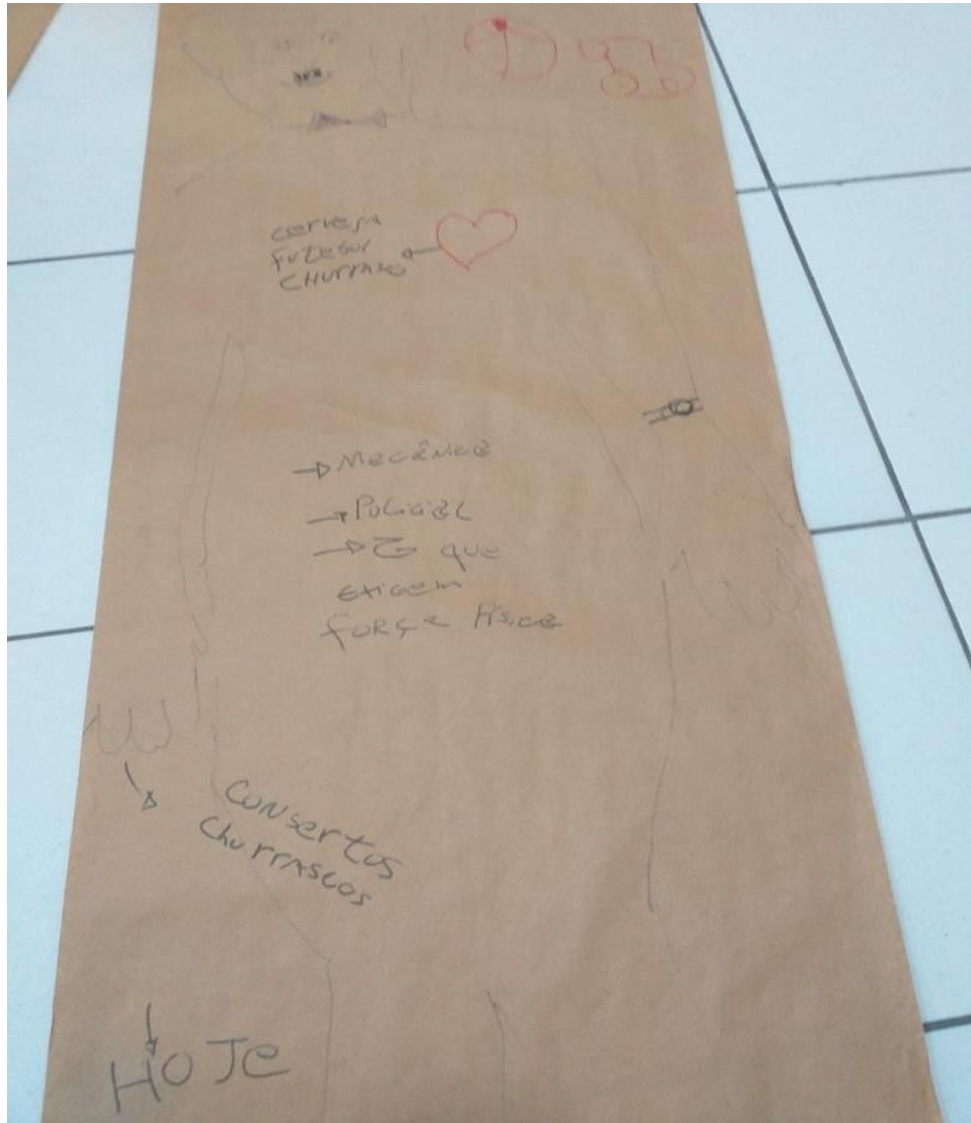 cerveja
Futebol
CHURRASCO
→ Mecânica
→ Policial
→ que
exigem
força física
Consertos
Churrascos
HOJe